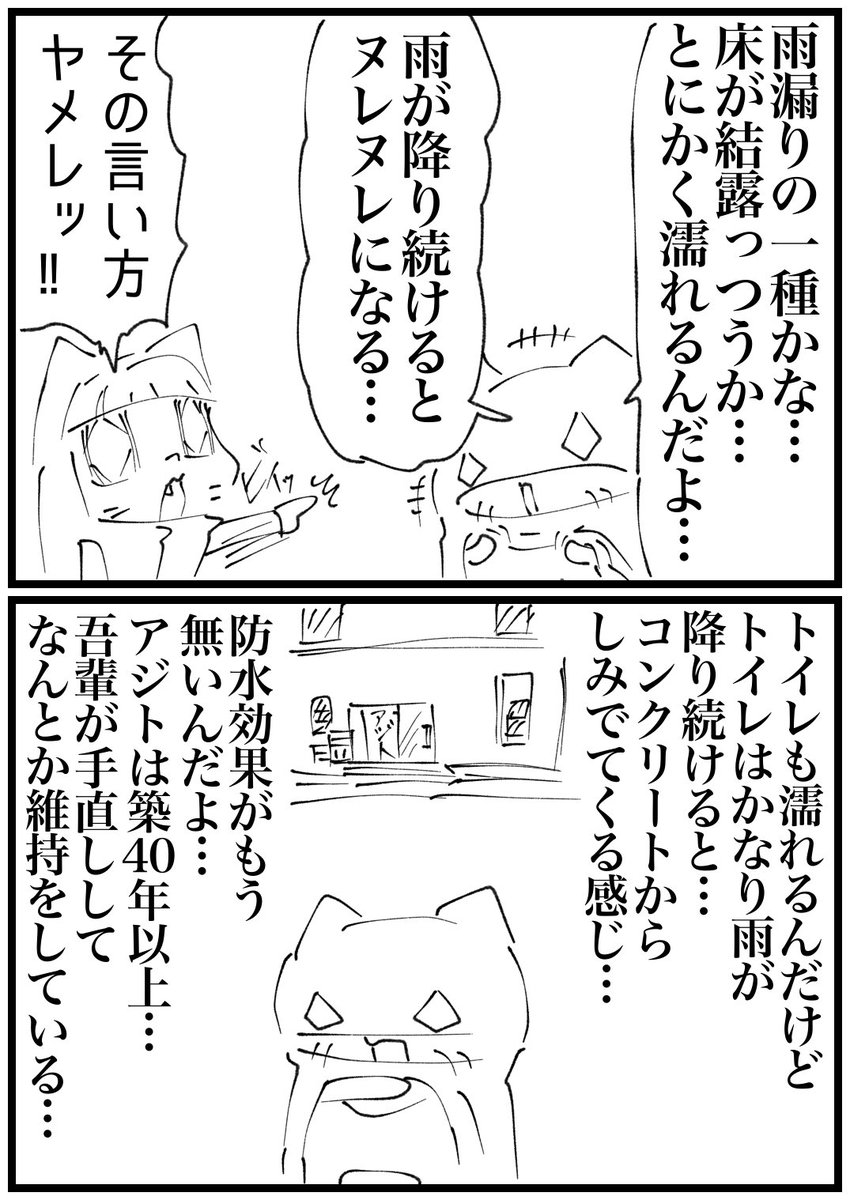 雨漏りの一種かな…
床が結露っつうか…
とにかく濡れるんだよ…
雨が降り続けると
ヌレヌレになる…
その言い方
ヤメレッ!!
ビイッ
トイレも濡れるんだけど
トイレはかなり雨が
降り続けると…
コンクリートから
しみでてくる感じ…
アジト
防水効果がもう
無いんだよ…
アジトは築40年以上…
吾輩が手直しして
なんとか維持をしている…